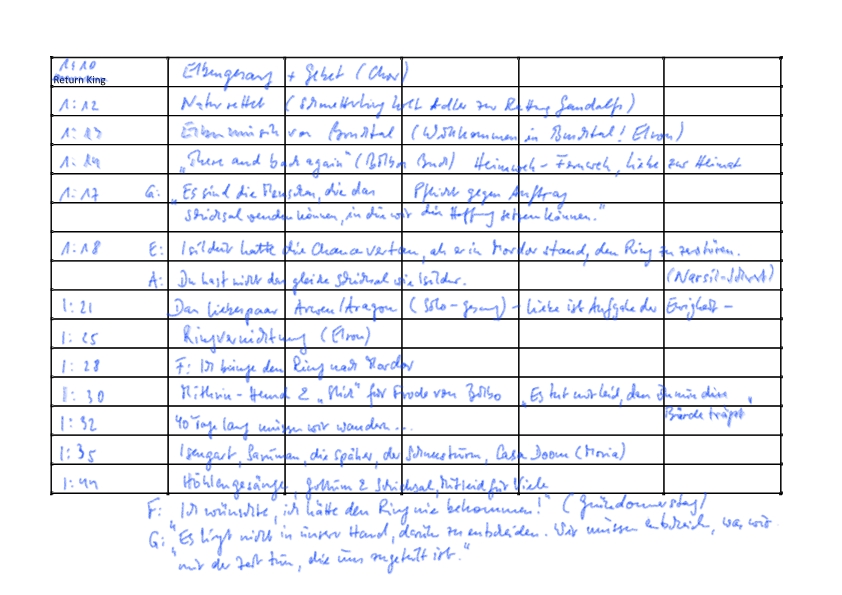 1:10 Elbengesang + Gebet (Chor)
Return King
1:12 Natur rettet (Schmetterling holt Adler zur Rettung Gandalfs)
1:13 Elbenmusik von Bruchtal (Willkommen in Bruchtal! Elron)
1:14 „There and back again" (Bilbos Buch) Heimweh - Fernweh, Liebe zur Heimat
1:17 G: „Es sind die Menschen, die das Pflicht gegen Auftrag
Schicksal wenden können, in die wir die Hoffnung setzen können."
1:18 E: Isildur hatte die Chance vertan, als er in Mordor stand, den Ring zu zerstören.
A: Du hast nicht das gleiche Schicksal wie Isildur. (Narsil-Schwert)
1:21 Das Liebespaar Arwen/Aragon (Solo-gesang) - Liebe ist Aufgabe der Ewigkeit -
1:25 Ringvernichtung (Elron)
1:28 F: Ich bringe den Ring nach Mordor
1:30 Mithrin-Hemd & „Stich" für Frodo von Bilbo „Es tut mir leid, dass Du nun diese
Bürde trägst"
1:32 40 Tage lang müssen wir wandern...
1:35 Isengart, Saruman, die Späher, der Schneesturm, Casa Doom (Moria)
1:44 Höhlengesänge, Gollum & Schicksal, Mitleid für Viele
F: Ich wünschte, ich hätte den Ring nie bekommen!" (Gründonnerstag)
G: "Es liegt nicht in unserer Hand, darüber zu entscheiden. Wir müssen entscheiden, was wir
mit der Zeit tun, die uns zugeteilt ist."